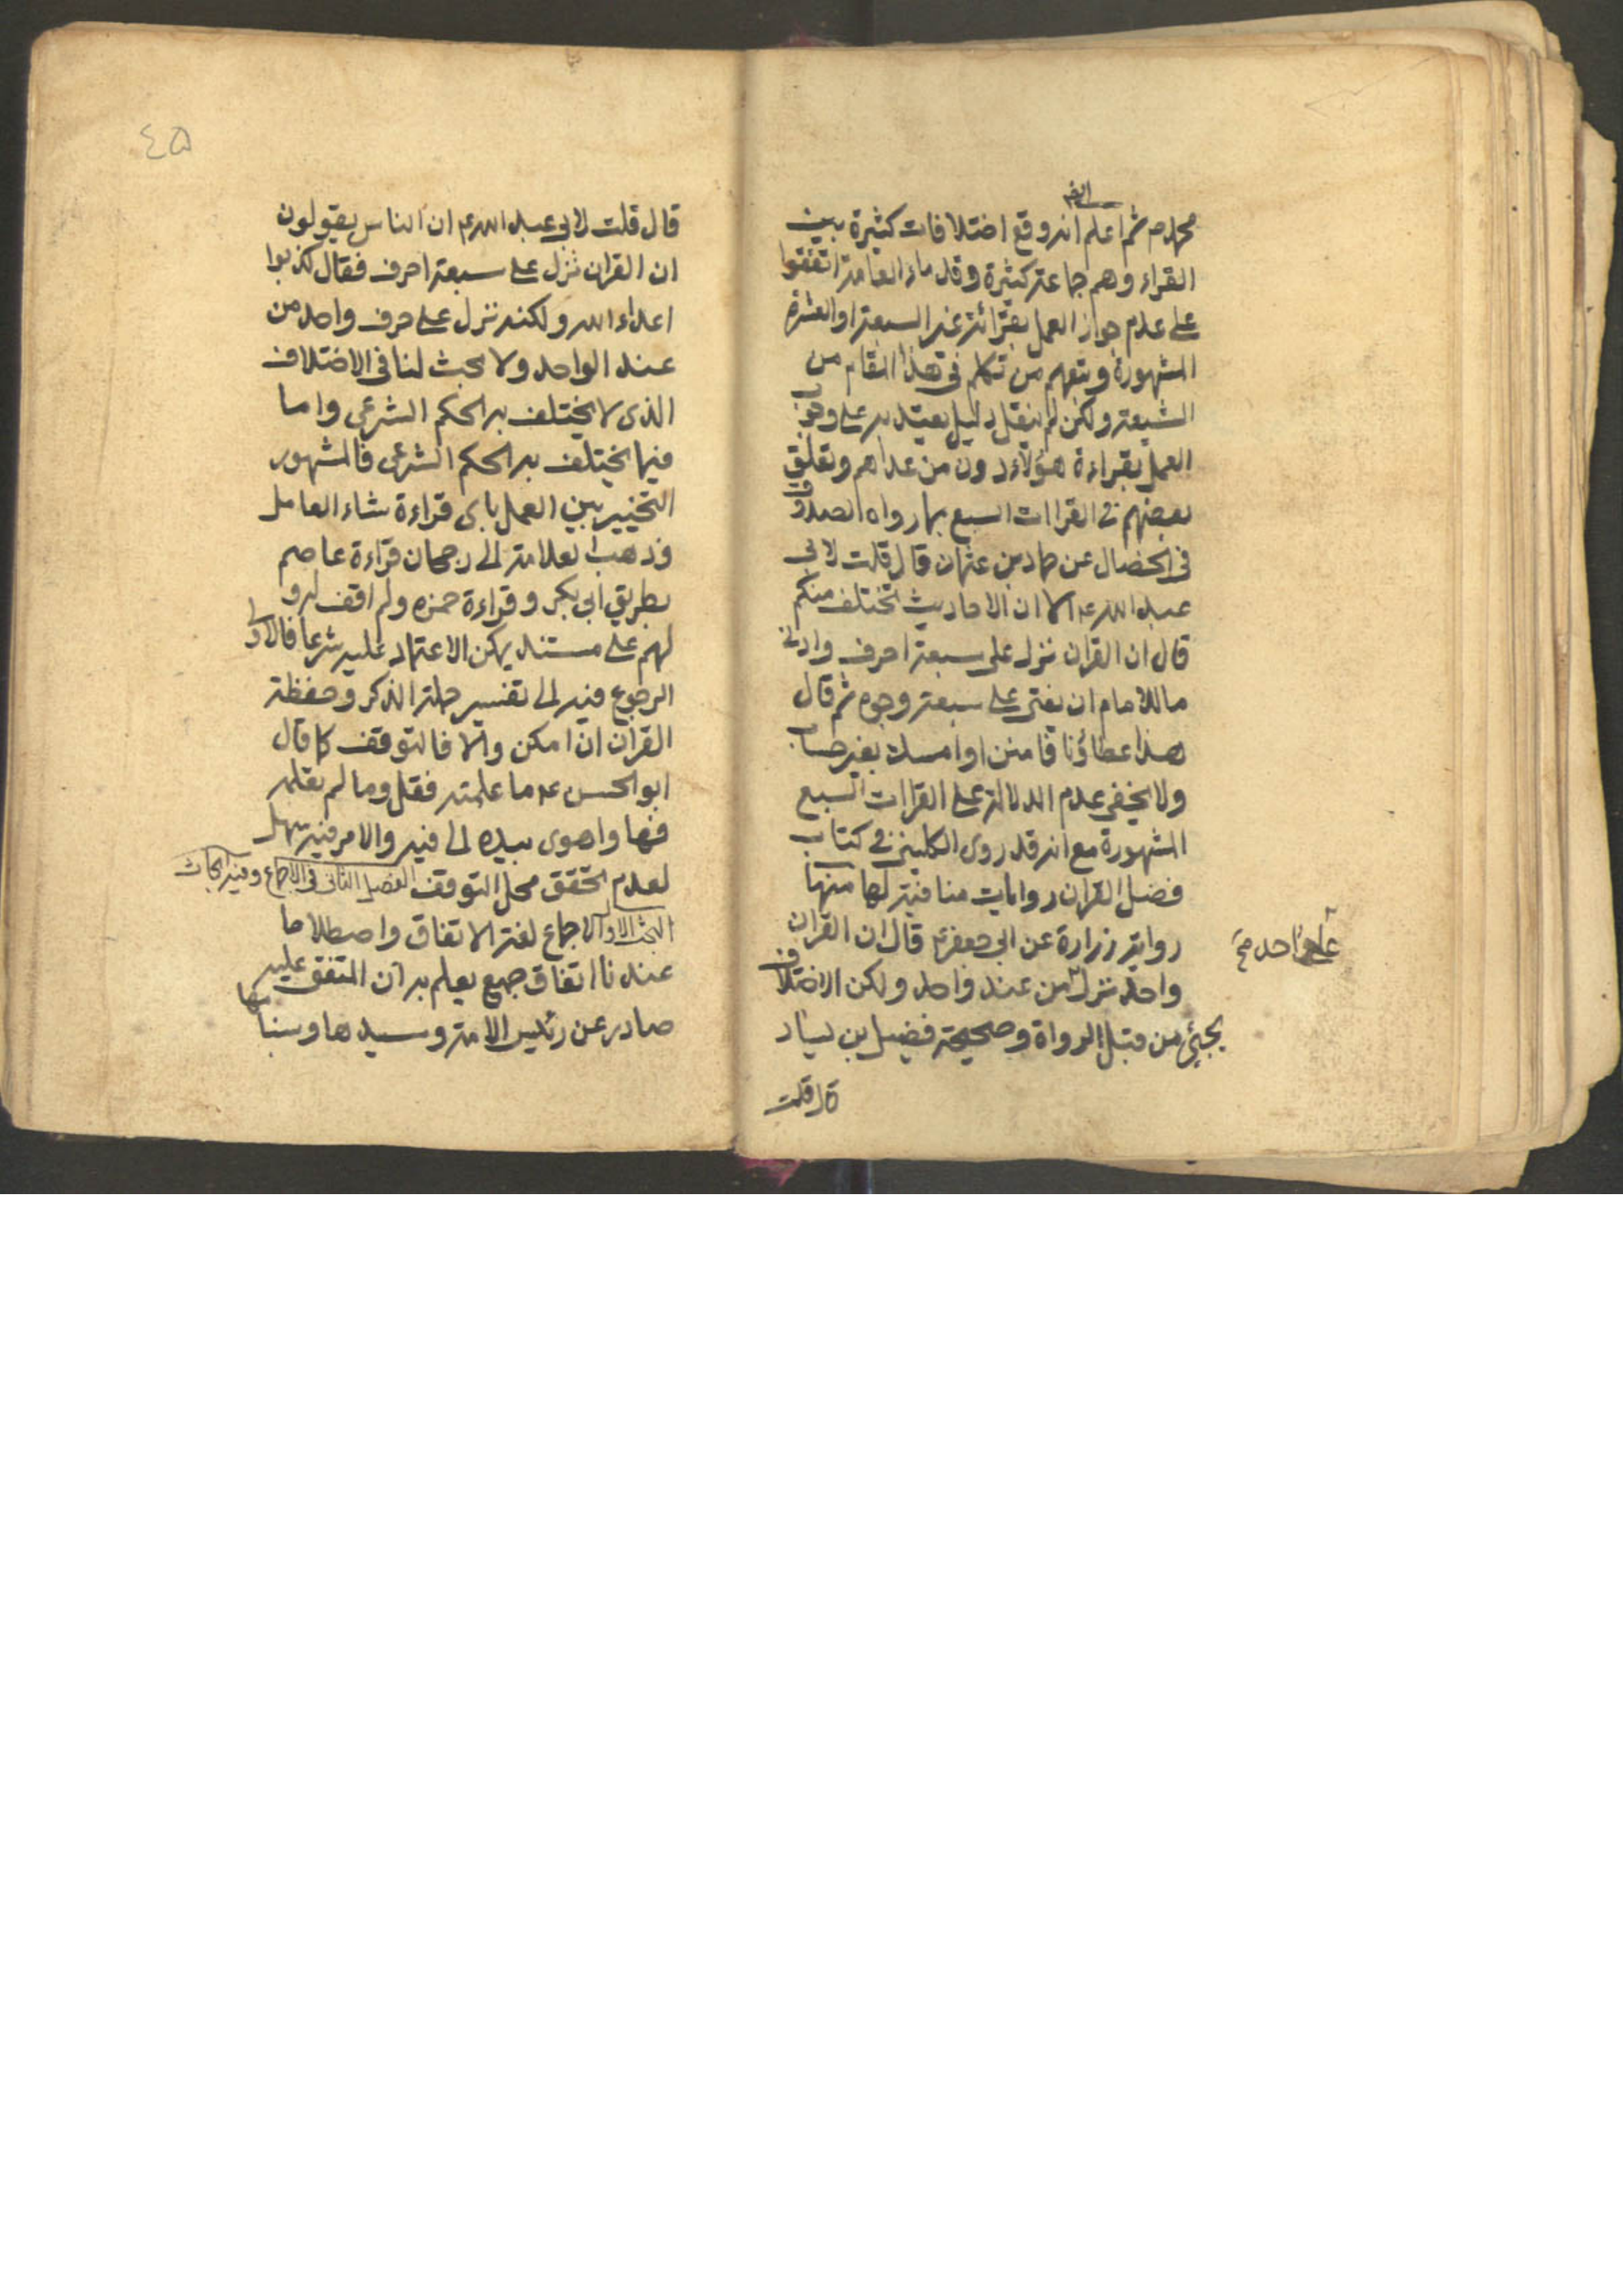 ايضا
محمد ص ثم اعلم انه وقع اختلافات كثيرة بين
القراء وهم جماعة كثيرة وقدماء العامة اتفقوا
على عدم جواز العمل بقرائة غير السبعة او العشرة
المشهورة وتبعهم من تكلم في هذا المقام من
الشيعة ولكن لم ينقل دليل يعتد به على وجوب
العمل بقراءة هؤلاء دون من عداهم وتعلق
بعضهم في القراات السبع بما رواه الصدوق
في الخصال عن حماد بن عثمان قال قلت لابي
عبد الله ع ان الاحاديث تختلف منكم
قال ان القران نزل على سبعة احرف وادنى
ما للامام ان يفتى على سبعة وجوه ثم قال
هذا عطاؤنا فامنن او امسك بغير حساب
ولا يخفى عدم الدلالة على القراات السبع
المشهورة مع انه قد روى الكلينى في كتاب
فضل القران روايات منافية لها منها
رواية زرارة عن ابى جعفر ع قال ان القران
واحد نزل من عند واحد ولكن الاختلاف
يجئ من قبل الرواة وصحيحة فضيل بن يسار
قال قلت
٤۵
قال قلت لابى عبد الله ع ان الناس يقولون
ان القران نزل على سبعة احرف فقال كذبوا
اعداء الله ولكنه نزل على حرف واحد من
عند الواحد ولا بحث لنا فى الاختلاف
الذى لا يختلف به الحكم الشرعى واما
فيما يختلف به الحكم الشرعى فالمشهور
التخيير بين العمل باى قراءة شاء العامل
وذهب العلامة الى رجحان قراءة عاصم
بطريق ابى بكر وقراءة حمزه ولم اقف له و
لهم على مستند يمكن الاعتماد عليه شرعا فالاولى
الرجوع فيه الى تفسير حملة الذكر وحفظة
القران ان امكن والا فالتوقف كما قال
ابو الحسن ع ما علمته فقل وما لم تعلمه
فها واهوى بيده الى فيه والامر فيه سهل
لعدم تحقق محل التوقف الفصل الثانى فى الاجماع وفيه ابحاث
البحث الاول الاجماع لغة الاتفاق واصطلاحا
عندنا اتفاق جمع يعلم به ان المتفق عليه
صادر عن رئيس الامة وسيدها وسنامها